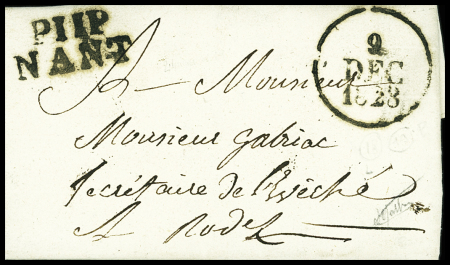 P11P
NANT
9
DEC
1828
A Monsieur
Monsieur gabriac
Secrétaire de l'Evêché
A Rodez